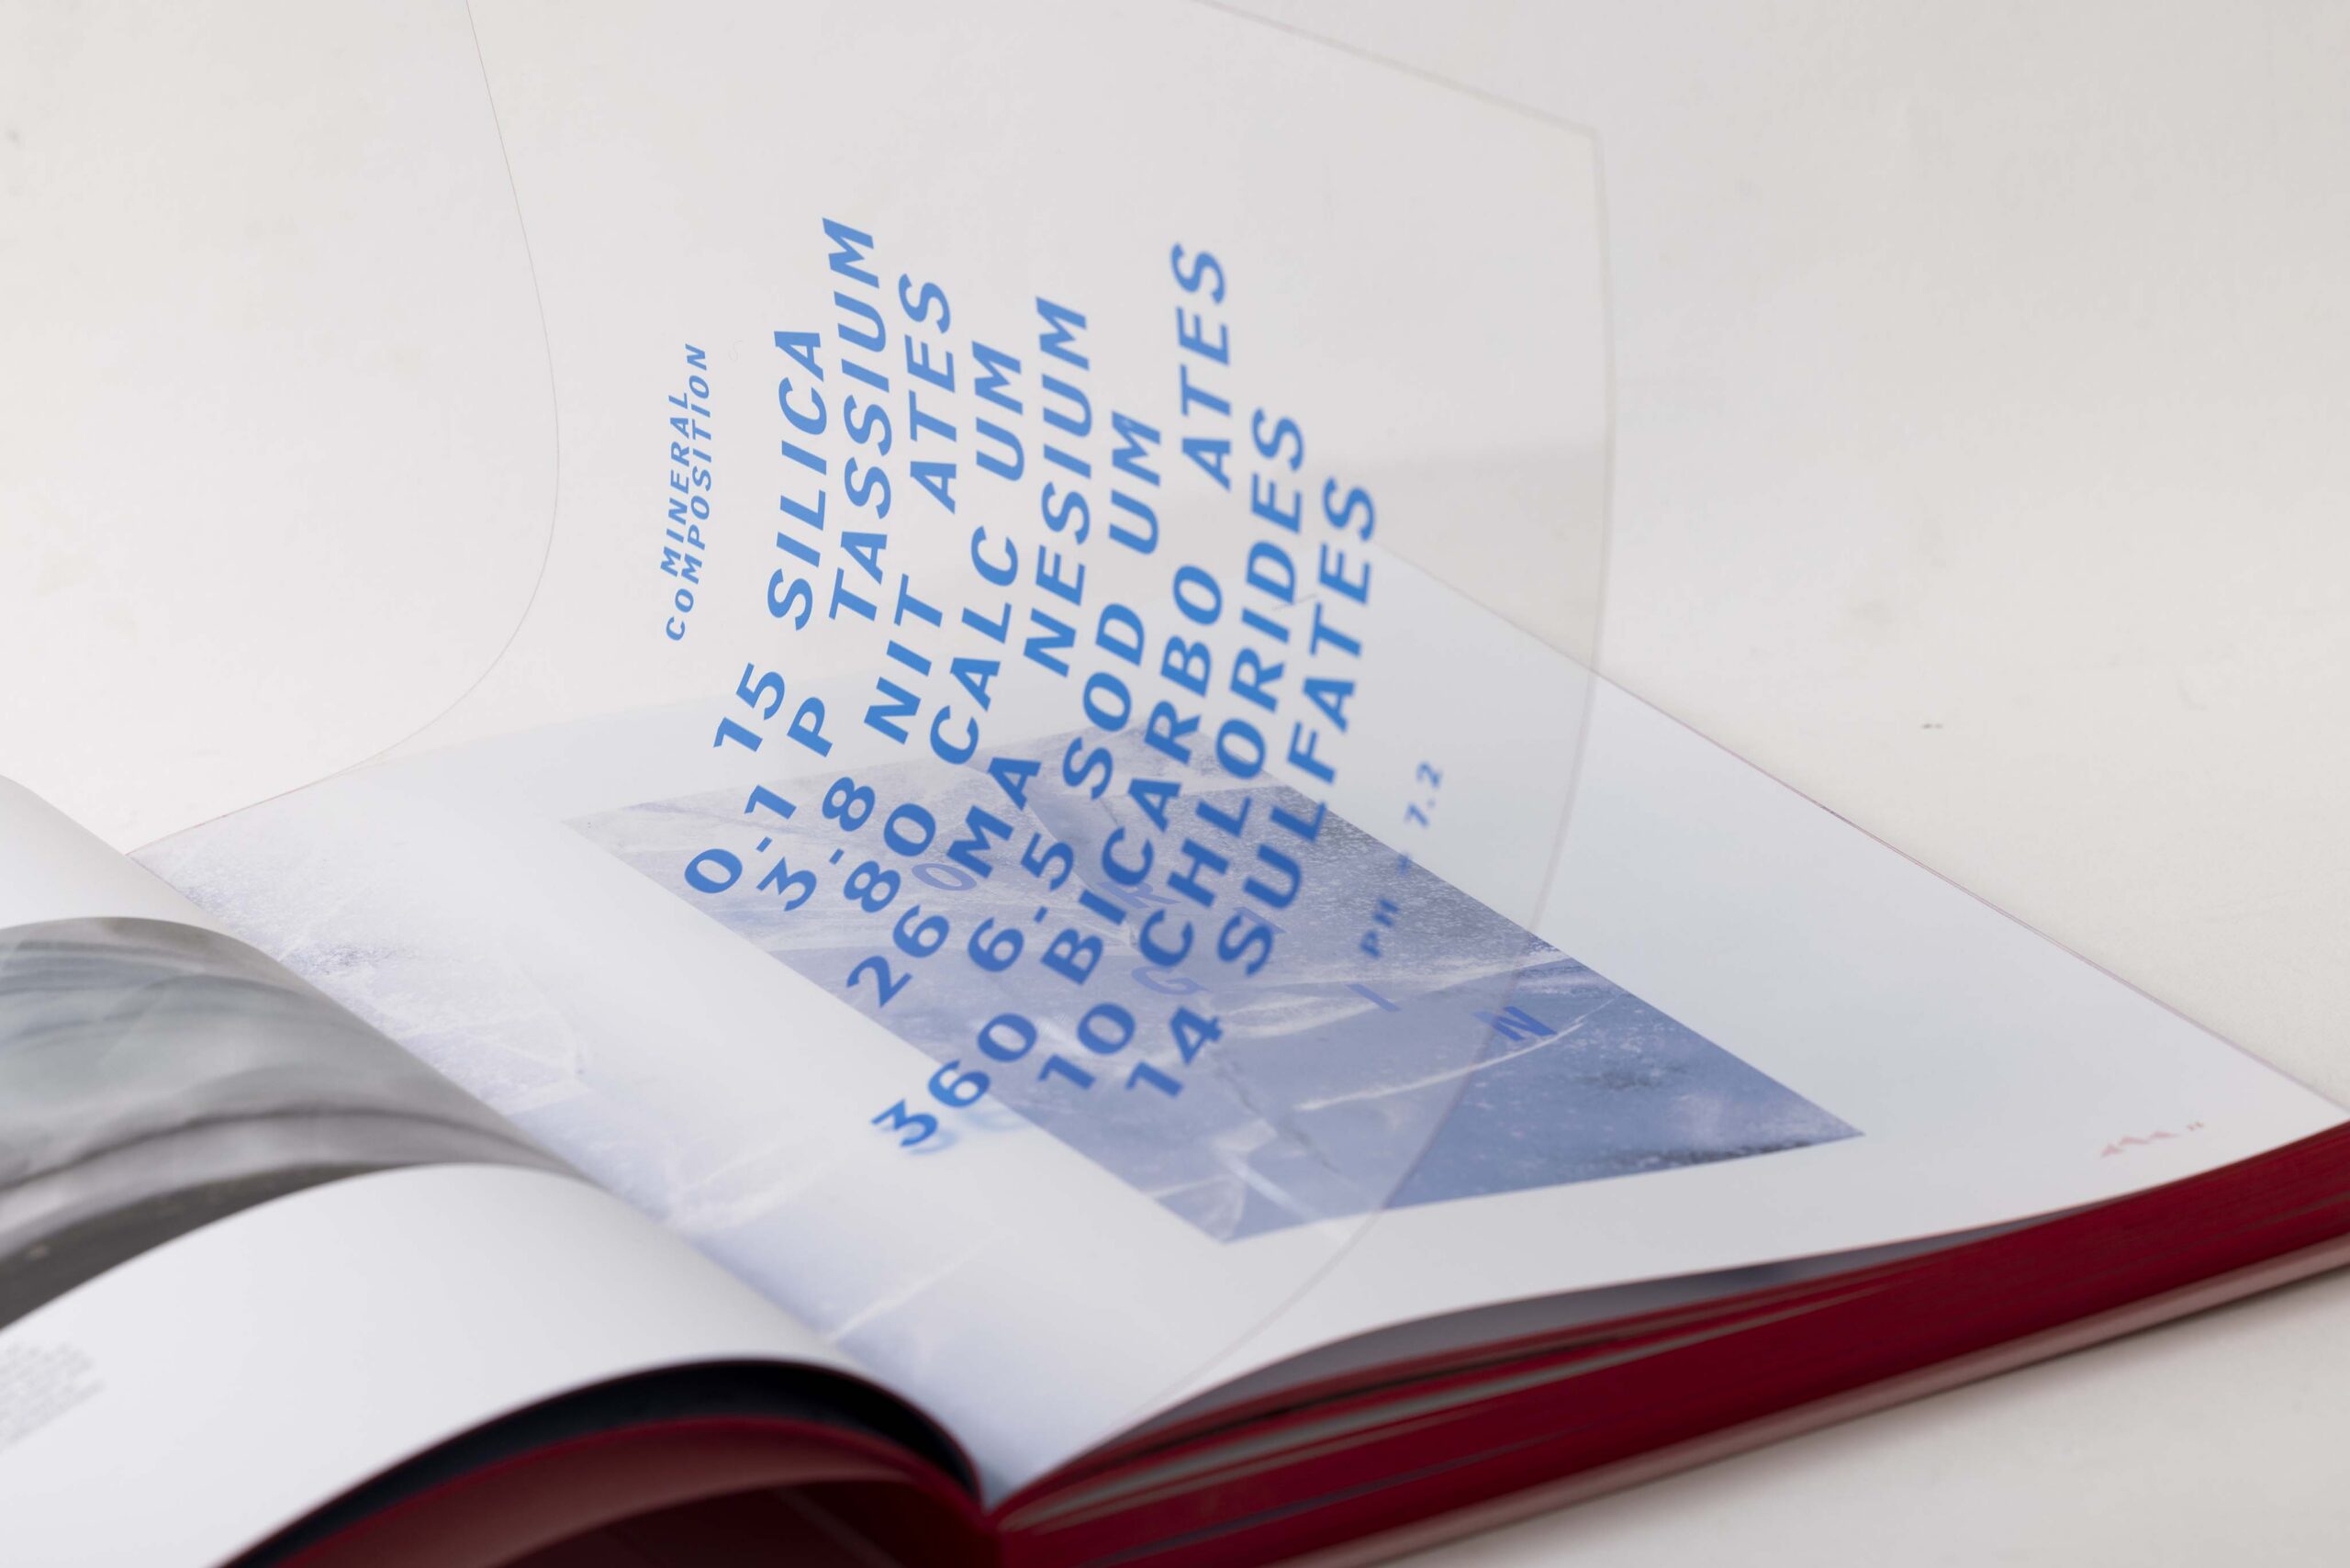 MINERAL
COMPOSITION
15 SILICA
0.1 P TASSIUM
3.8 NIT ATES
80 CALC UM
26 MA NESIUM
6.5 SOD UM
360 BICARBO ATES
10 CHLORIDES
14 SULFATES
PH = 7.2
O R I G I N